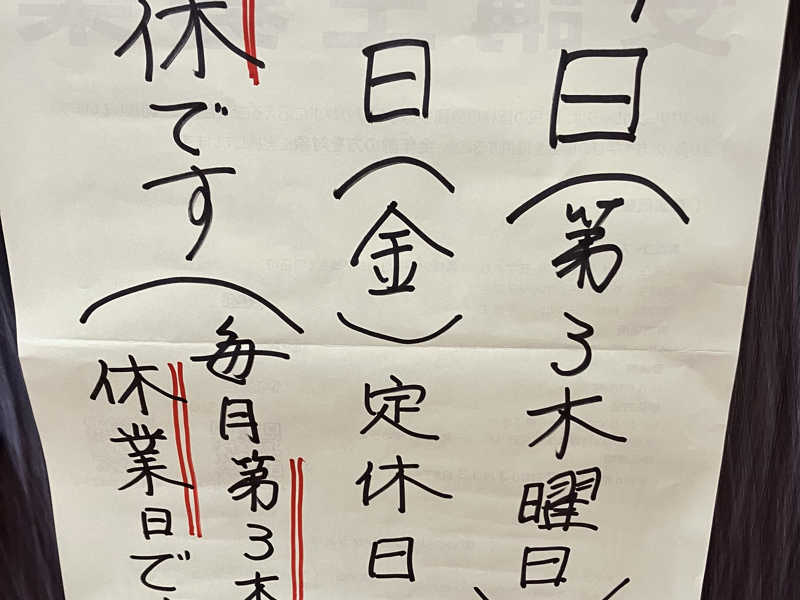 日(第3木曜日)
日(金)定休日
休です(毎月第3木
休業日で